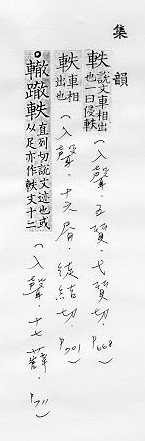 集韻
軼 說文車相出也一曰侵軼（入聲．五質．弋質切．P668）
軼 車相出也（入聲．十六屑．徒結切．P701）
○轍軼 直列切說文迹也或从足亦作軼文十二（入聲．十七薛．P711）